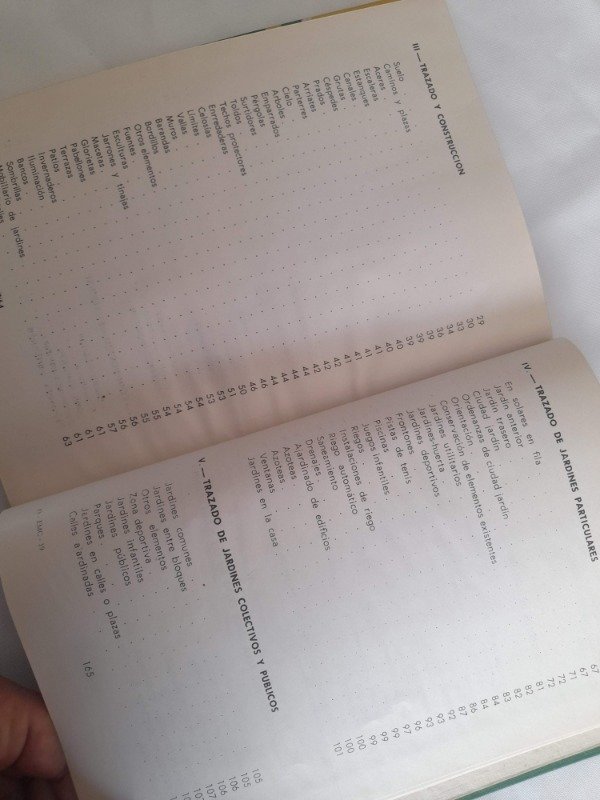 III — TRAZADO Y CONSTRUCCION
Suelo
Caminos y plazas
Aceras
Escaleras
Estanques
Canales
Grutas
Céspedes
Prados
Arriates
Parterres
Cielo
Arboles
Emparrados
Pérgolas
Surtidores
Toldos
Techos protectores
Enredaderas
Celosías
Límites
Vallas
Muros
Barandas
Bordillos
Otros elementos
Fuentes
Esculturas
Jarrones y tinajas
Macetas
Glorietas
Pabellones
Terrazas
Patios
Invernaderos
Iluminación
Bancos
Sombrillas
Mobiliario de jardines
29
30
33
34
36
39
39
39
40
40
41
41
41
42
42
42
44
44
44
44
46
46
50
51
53
53
54
54
54
55
55
56
56
57
61
61
61
63
164
IV — TRAZADO DE JARDINES PARTICULARES
En solares en fila
Jardín anterior
Jardín trasero
Ciudad jardín
Ordenanzas de ciudad jardín
Orientación
Conservación de elementos existentes
Jardines utilitarios
Jardines-huerta
Jardines deportivos
Frontones
Pistas de tenis
Piscinas
Juegos infantiles
Riegos
Instalaciones de riego
Riego automático
Saneamiento
Drenajes
Ajardinado de edificios
Azoteas
Azoteas
Ventanas
Jardines en la casa
67
67
71
72
72
81
82
82
83
84
84
86
87
92
93
93
96
97
99
99
99
100
100
101
V — TRAZADO DE JARDINES COLECTIVOS Y PUBLICOS
Jardines comunes
Jardines entre bloques
Otros elementos
Zona deportiva
Jardines infantiles
Jardines públicos
Parques
Jardines en calles o plazas
Calles a ardinadas
105
105
106
106
107
107
165